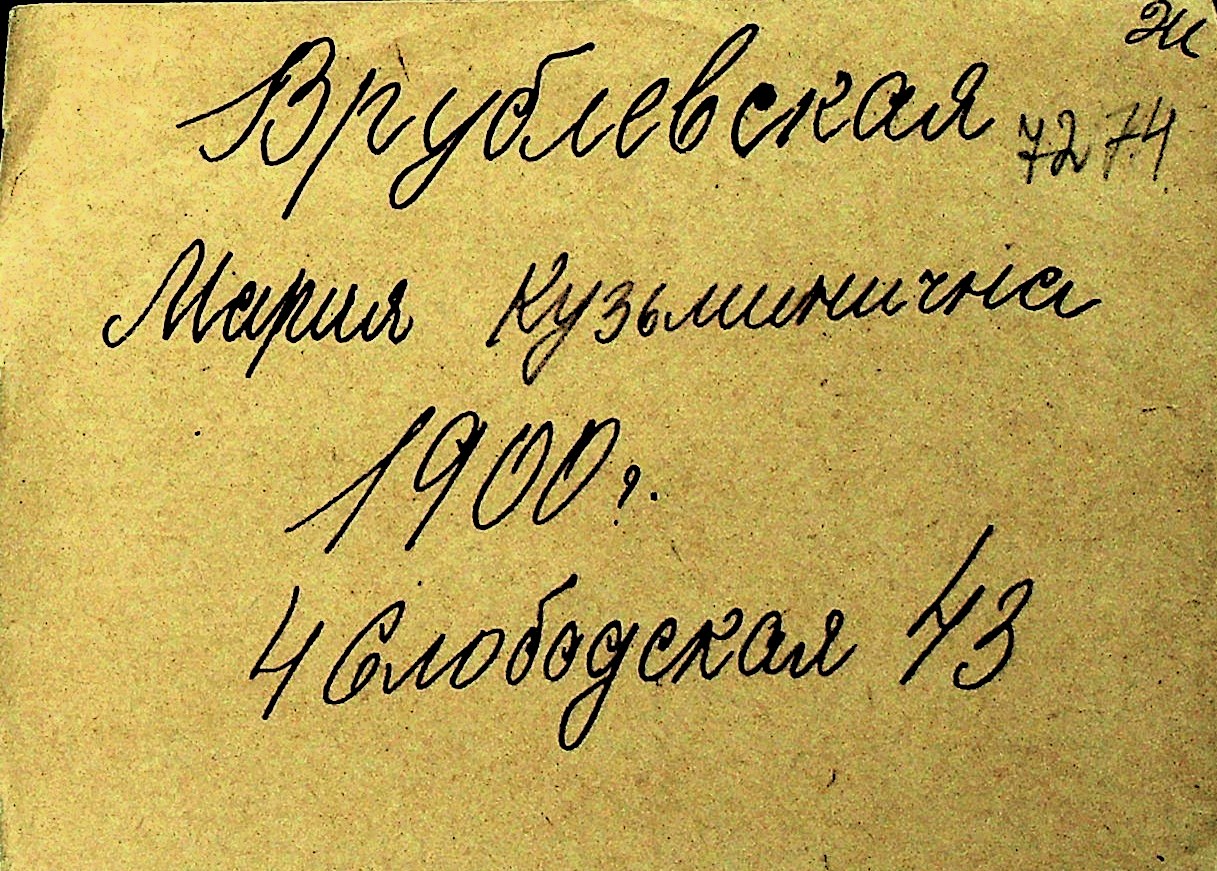 Ж
Врублевская
7274
Мария Кузьминична
1900 г.
4 Слободская 43